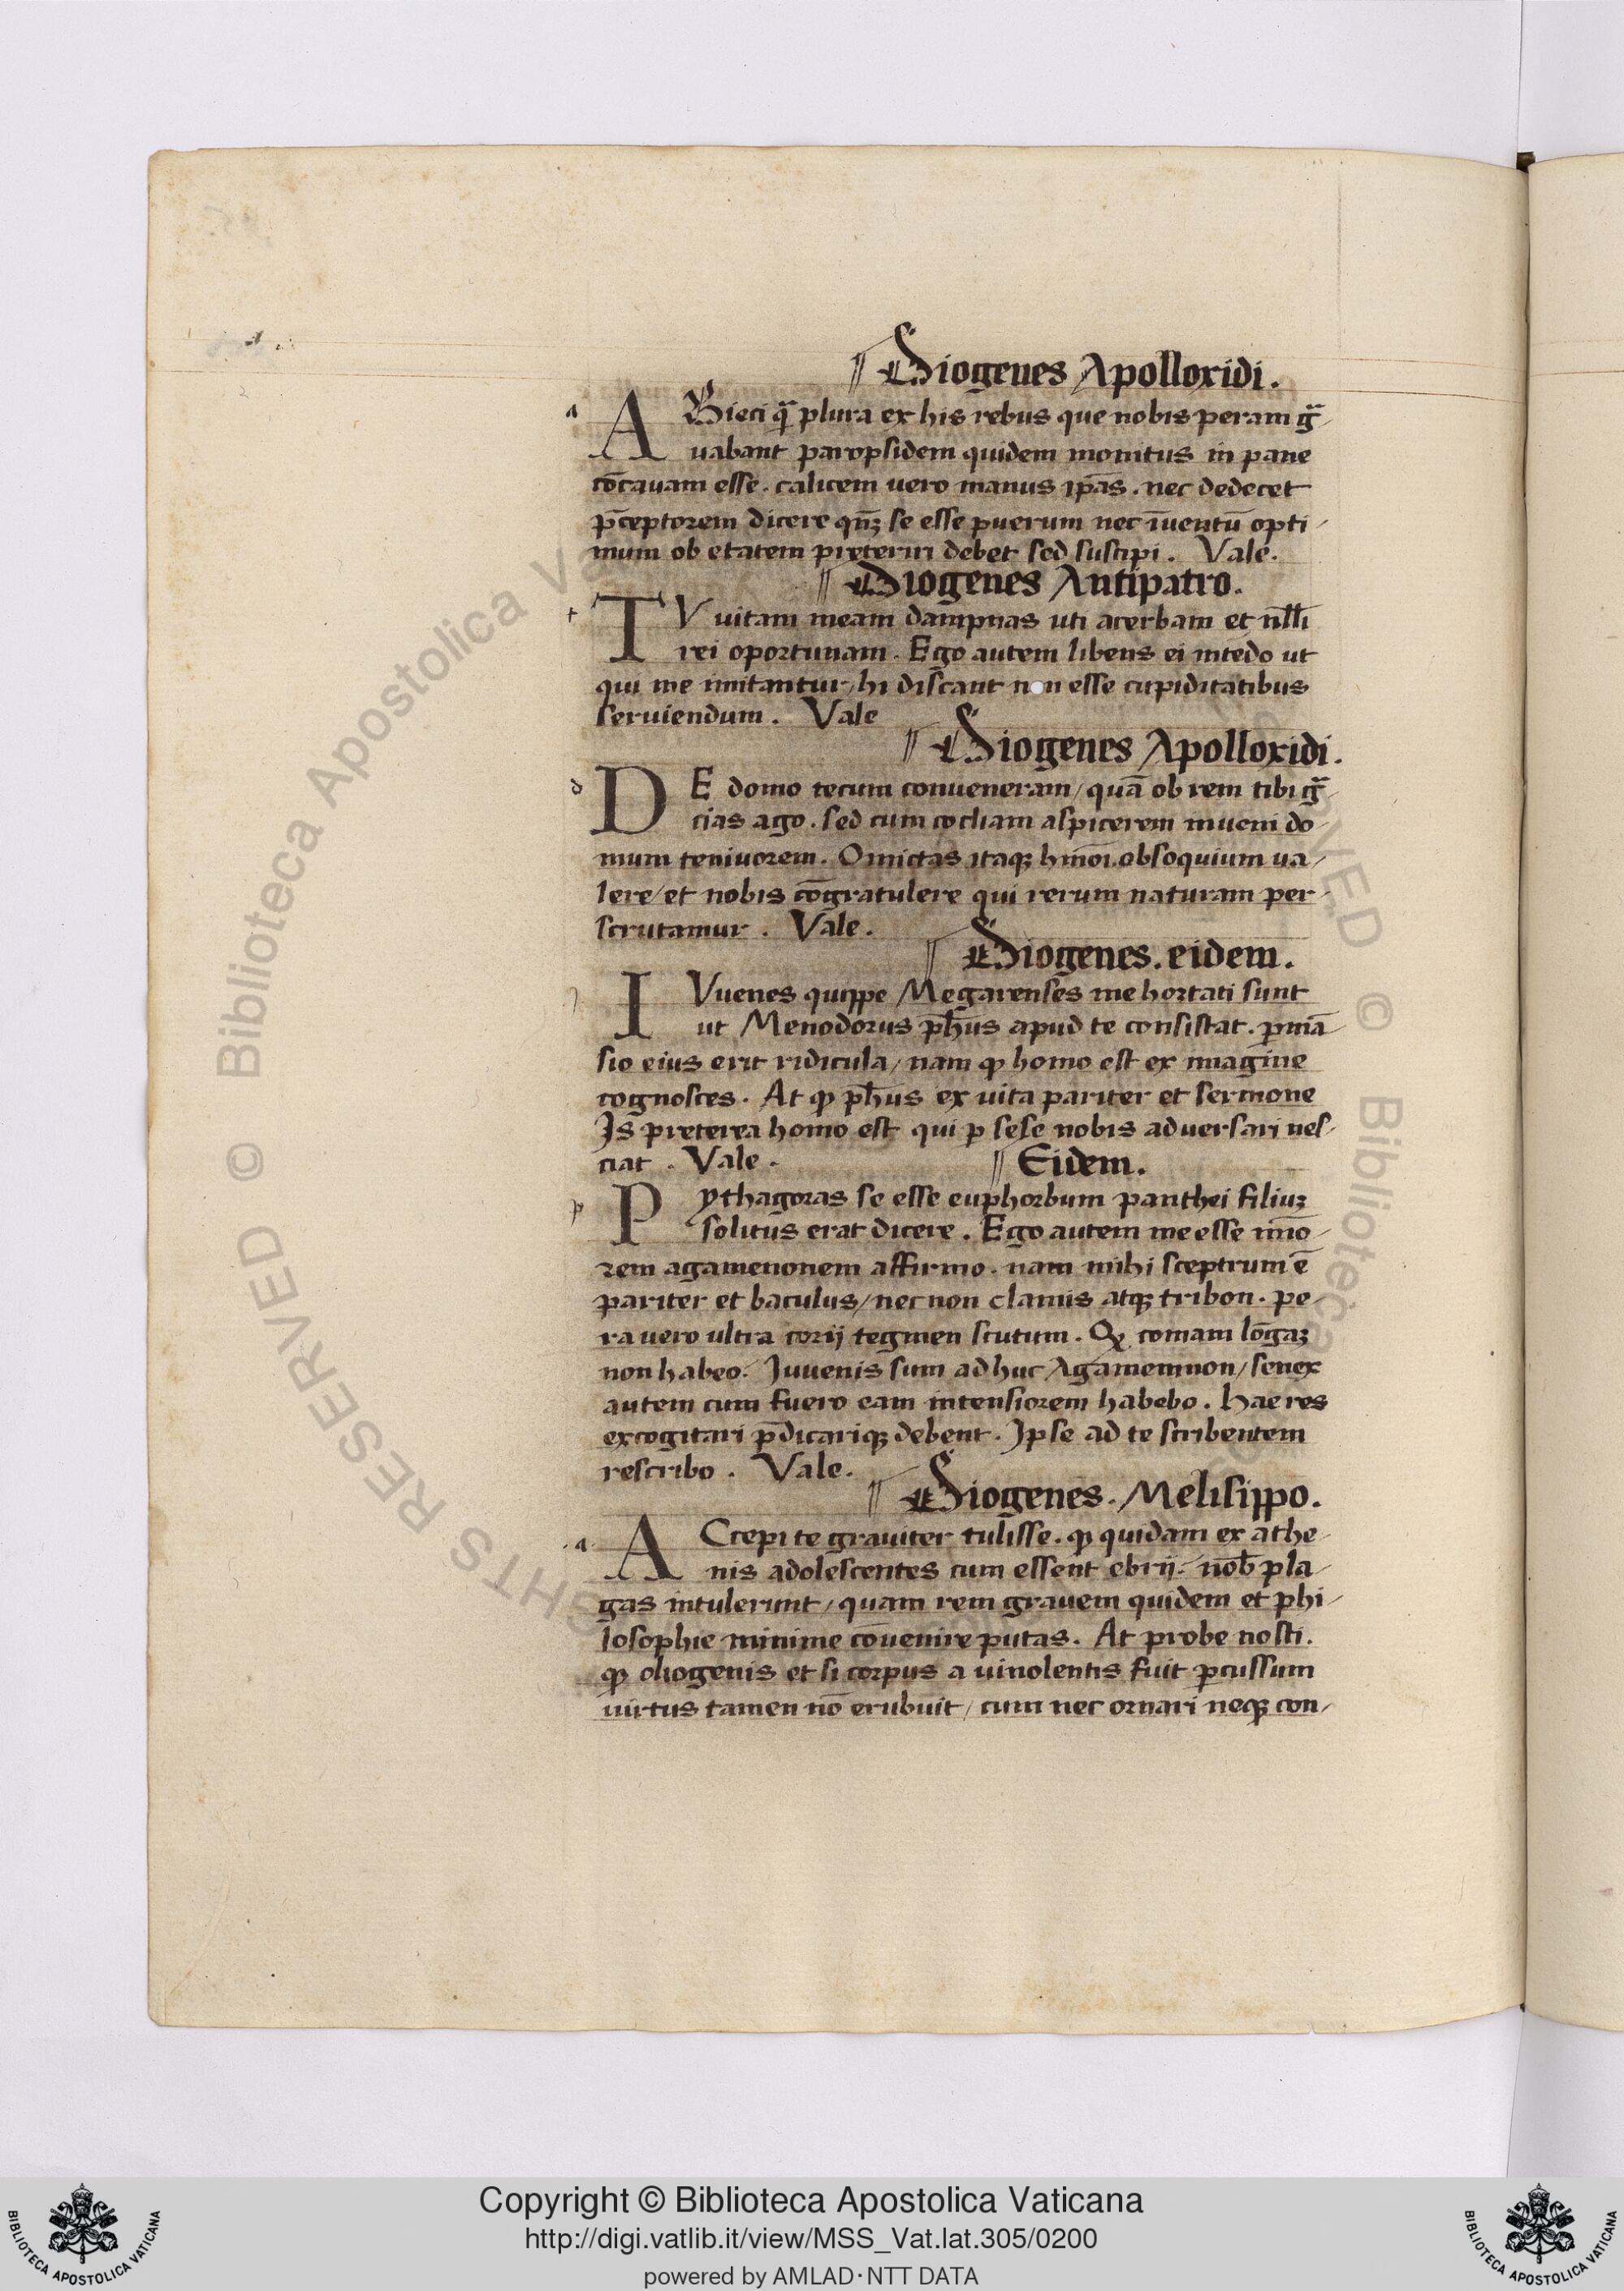 ¶ Diogenes Apolloxidi.
a
ABieci q̄ plura ex his rebus que nobis peram g̃-
uabant paropsidem quidem monitus in pane
cōcauam esse. calicem uero manus ip̄as. nec dedecet
p̄ceptorem dicere qn̄ꝫ se esse puerum nec īuentū opti-
mum ob etatem preteriri debet sed suscipi. Vale.
¶ Diogenes Antipatro.
t
TV uitam meam dampnas uti acerbam et nłłi
rei oportunam. Ego autem libens ei intedo ut
qui me imitantur/ hi discant non esse cupiditatibus
seruiendum. Vale
¶ Diogenes Apolloxidi.
d
DE domo tecum conueneram/ quā ob rem tibi g̃-
cias ago. sed cum cocliam aspicerem inueni do-
mum teniuorem. Omictas itaqꝫ hmōi. obsoquium ua-
lere/ et nobis cōgratulere qui rerum naturam per-
scrutamur. Vale.
¶ Diogenes. eidem.
IVuenes quippe Megarenses me hortati sunt
ut Menodorus ph̄us apud te consistat. ꝑmā
sio eius erit ridicula/ nam ꝙ homo est ex imagine
cognosces. At ꝙ ph̄us ex uita pariter et sermone
Js preterea homo est qui ꝑ sese nobis aduersari nes-
ciat. Vale.
¶ Eidem.
p
Pythagoras se esse euphorbum panthei filiuꝫ
solitus erat dicere. Ego autem me esse imō-
rem agamenonem affirmo. nam mihi sceptrum ē
pariter et baculus/ nec non clamis atqꝫ tribon. pe-
ra uero ultra corij tegmen scutum. Qꝫ comam lōgaꝫ
non habeo. Juuenis sum ad huc Agamemnon/ senex
autem cum fuero eam intensiorem habebo. hae res
excogitari p̄dicariqꝫ debent. Jpse ad te scribentem
rescribo. Vale.
¶ Diogenes. Melisippo.
.a.
ACcepi te grauiter tulisse. ꝙ quidam ex athe-
nis adolescentes cum essent ebrij. nob̄ pla-
gas intulerunt/ quam rem grauem quidem et phi-
losophie minime cōuenire putas. At probe nosti.
ꝙ diogenis et si corpus a uinolentis fuit ꝑcussum
uirtus tamen nō erubuit/ cum nec ornari neqꝫ con-
Copyright © Biblioteca Apostolica Vaticana
http://digi.vatlib.it/view/MSS_Vat.lat.305/0200
powered by AMLAD·NTT DATA